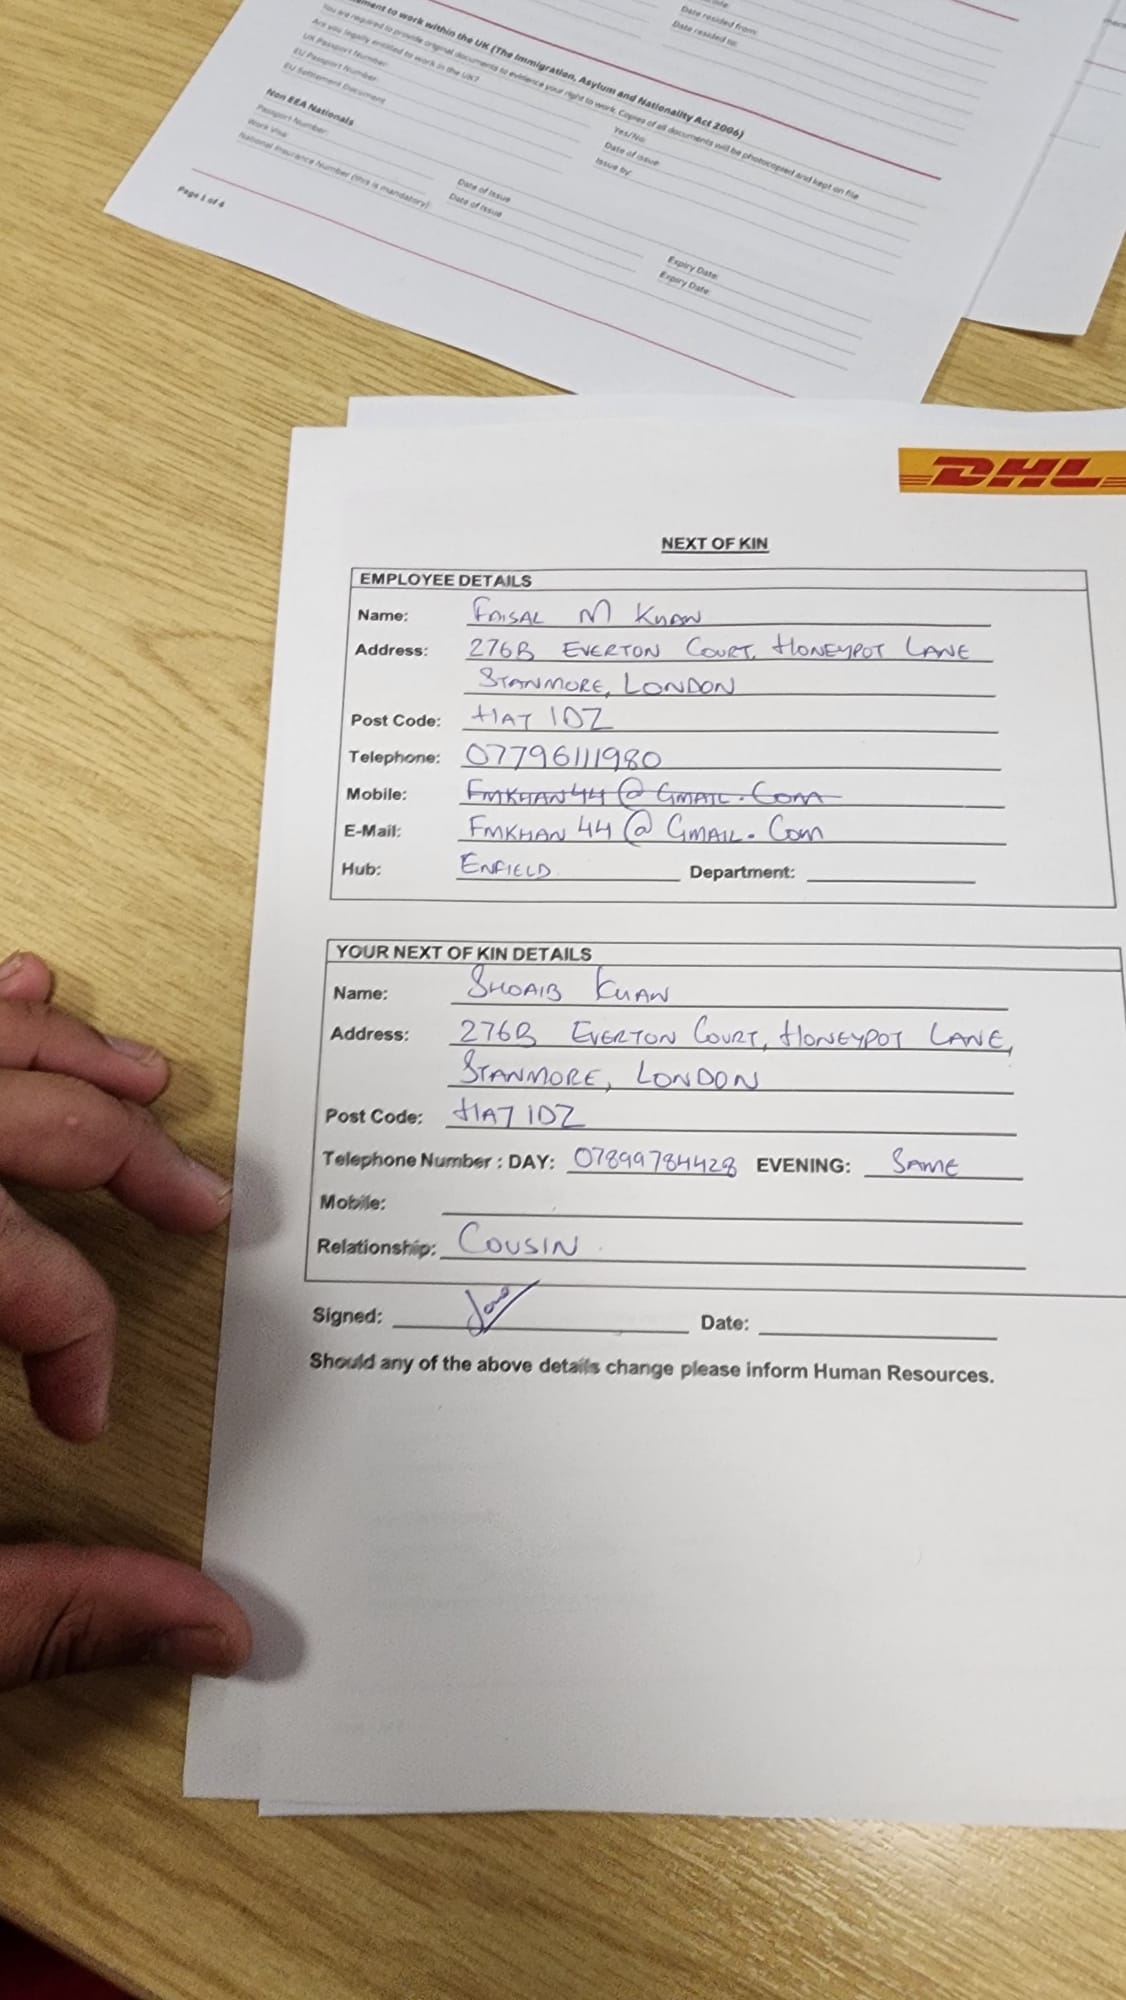 Date resided from:
Date resided to:
ment to work within the UK (The Immigration, Asylum and Nationality Act 2006)
You are required to provide original documents to evidence your right to work. Copies of all documents will be photocopied and kept on file
Are you legally entitled to work in the UK?
Yes/No:
UK Passport Number:
Date of issue:
EU Passport Number:
Issue by:
EU Settlement Document
Non EEA Nationals
Passport Number:
Date of Issue
Expiry Date:
Work Visa:
Date of Issue
Expiry Date:
National Insurance Number (this is mandatory)
Page 1 of 4
DHL
NEXT OF KIN
EMPLOYEE DETAILS
Name: FAISAL M KHAN
Address: 276B EVERTON COURT, HONEYPOT LANE
STANMORE, LONDON
Post Code: HA7 1DZ
Telephone: 07796111980
Mobile: FMKHAN44@GMAIL.COM
E-Mail: FMKHAN44@GMAIL.COM
Hub: ENFIELD Department:
YOUR NEXT OF KIN DETAILS
Name: SHOAIB KHAN
Address: 276B EVERTON COURT, HONEYPOT LANE,
STANMORE, LONDON
Post Code: HA7 1DZ
Telephone Number : DAY: 07899784428 EVENING: SAME
Mobile:
Relationship: COUSIN
Signed: Date:
Should any of the above details change please inform Human Resources.